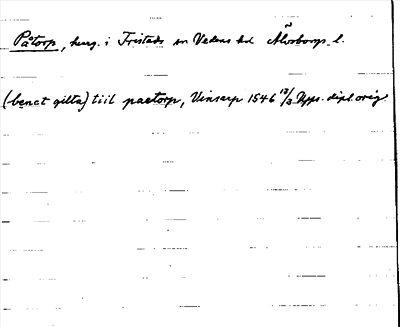 Påtorp, herg. i Fristads sn Vedens hd Älvsborgs l.
(benct gilta) tiil paetorp, Vinsarp 1546 12/3 Upps. dipl. orig